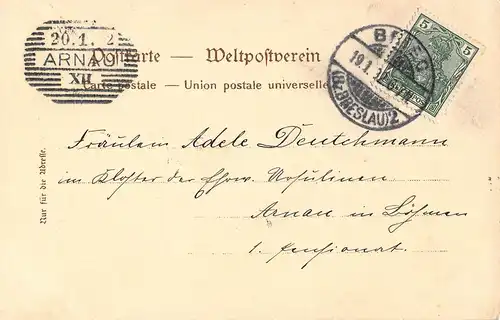 20.1. 2
ARNAU
XII
Postkarte — Weltpostverein
Carte postale — Union postale universelle
5 5
BRIEG
19.1.
(Bz. BRESLAU) 2
Nur für die Adresse.
Fräulein Adele Deutchmann
im Kloster der Ehrw. Ursulinen
Arnau in Böhmen
1. Pensionat.